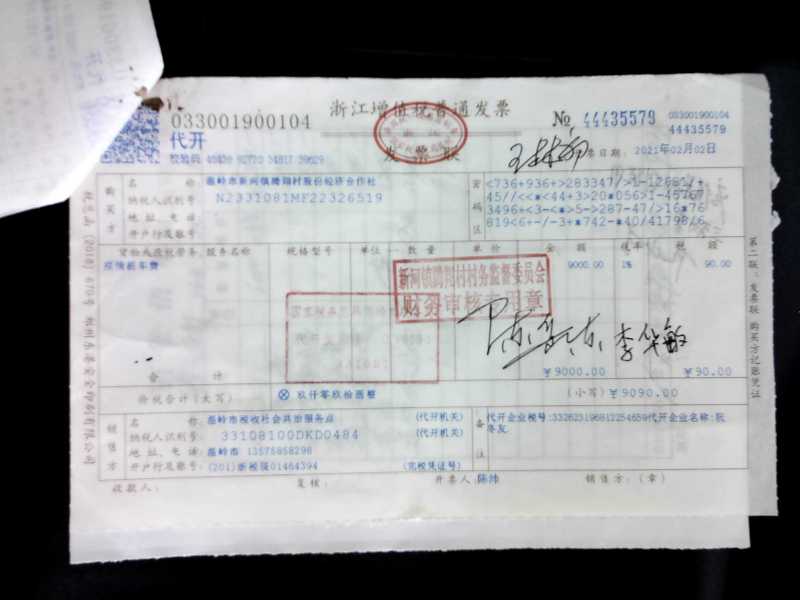 033001900104
浙江增值税普通发票
№ 44435579
033001900104
44435579
代开
发票联
开票日期: 2021年02月02日
购买方
名称: 温岭市新河镇腾翔村股份经济合作社
纳税人识别号: N2331081MF22326519
地址、电话:
开户行及账号:
密码区
货物或应税劳务、服务名称 规格型号 单位 数量 单价 金额 税率 税额
疫情租车费 9000.00 1% 90.00
新河镇腾翔村村务监督委员会
财务审核专用章
李华敏
合计 ¥9000.00 ¥90.00
价税合计(大写) ⊗ 玖仟零玖拾圆整 (小写) ¥9090.00
销售方
名称: 温岭市税收社会共治服务点 (代开机关)
纳税人识别号: 33108100DKD0484 (代开机关)
地址、电话: 温岭市 13575858298
开户行及账号: (201)浙税现01464394 (完税凭证号)
备注
代开企业税号:332623196812254659代开企业名称:阮
冬友
收款人: 复核: 开票人:陈帅 销售方:(章)
第二联:发票联 购买方记账凭证